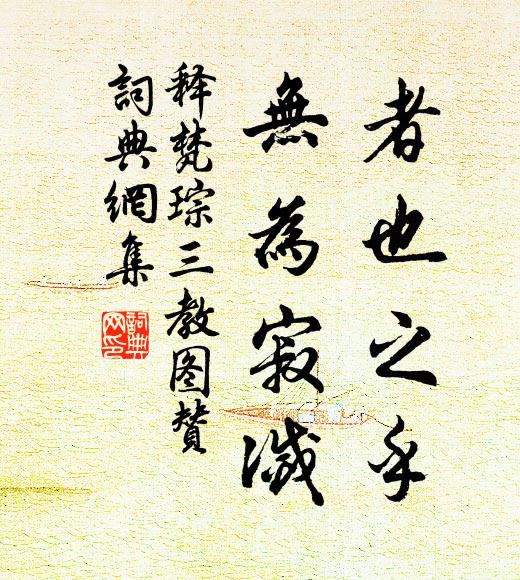 者也之乎
無為寂滅
释梵琮三教图赞
詞典網集
詞典
网印